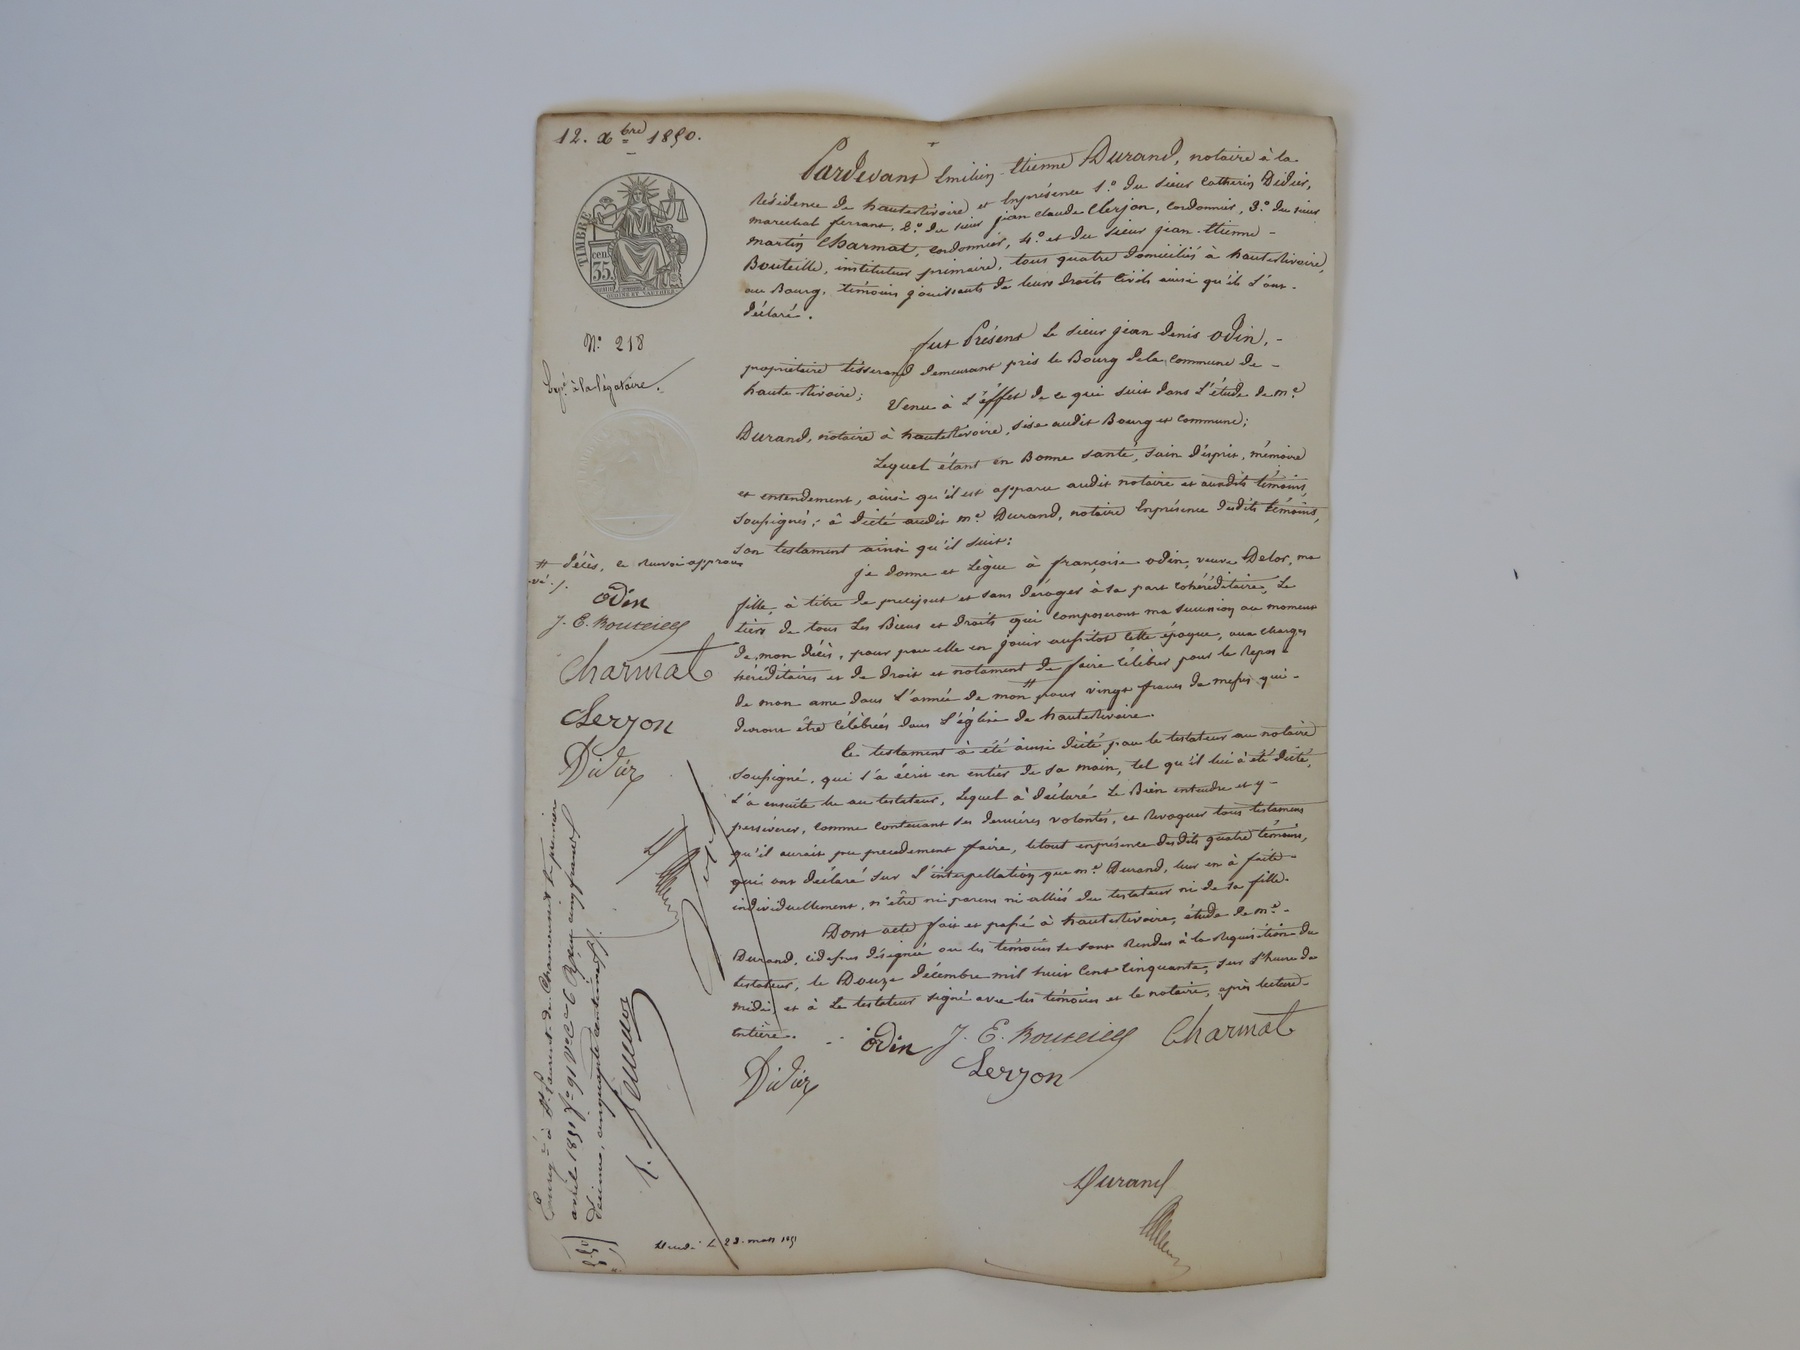 12. Xbre 1850.
TIMBRE
cent.
35
N° 218
à la légataire.
décès, ce renvoi approu
vé ./.
odin
J. E. Bouteille
Charmat
Clerjon
Didier
Pardevant Emilien-Etienne Durand, notaire à la
Résidence de hauterivoire et Enprésence 1.° du sieur Catherin Didier,
marechal ferrant, 2.° du sieur jean Claude Clerjon, Cordonnier, 3.° du sieur
martin Charmat, cordonnier, 4.° et du sieur jean-Etienne -
Bouteille, instituteur primaire, tous quatre domiciliés à hauterivoire,
au Bourg, témoins jouissants de leurs droits Civils ainsi qu'ils l'ont -
déclaré.
fut Présent Le sieur jean denis odin, -
propriétaire tisserand demeurant près le Bourg dela commune de -
haute-Rivoire;
Venu à l'éffet de ce qui suit dans l'étude de me
Durand, notaire à hauterivoire, sise audit Bourg et Commune;
Lequel étant en Bonne santé, sain d'esprit, mémoire
et entendement, ainsi qu'il est apparu audit notaire et auxdits témoins,
soussignés; à dicté audit me Durand, notaire Enprésence desdits témoins,
son testament ainsi qu'il suit:
je donne et Lègue à françoise odin, veuve Delor, ma
fille, à titre de preciput et sans déroger à sa part cohéréditaire, Le
tiers de tous Les Biens et droits qui composeront ma succession au moment
de mon décès, pour par elle en jouir aussitot cette époque, aux charges
héréditaires et de droit et notament de faire célébrer pour le Repos
de mon ame dans l'année de mon # pour vingt francs de messes qui -
devront être célébrées dans l'église de hauterivoire.
Ce testament à été ainsi dicté par le testateur au notaire
soussigné, qui l'a écrit en entier de sa main, tel qu'il lui à été dicté,
l'a ensuite lu au testateur, Lequel à déclaré Le Bien entendre et y -
perséverer, comme contenant ses dernières volontés, et Revoquer tous testamens
qu'il aurait pu precedement faire, letout enprésence desdits quatre témoins,
qui ont déclaré sur l'interpellation que me Durand, leur en à faite -
individuellement, n'être ni parens ni alliés du testateur ni de sa fille.
Dont acte fait et passé à hauterivoire, étude de me -
Durand, cidessus désignée ou les témoins se sont Rendus à la Requisition du
testateur, le Douze décembre mil huit Cent Cinquante, sur l'heure de
midi, et à Le testateur signé avec les témoins et le notaire, après lecture
entière.
odin J. E. Bouteille Charmat
Didier Clerjon
Durand
Enregé à St. Laurent-de-Chamousset le premier
avril 1851 fo 91 Vo Co 6 Reçu cinq francs
Décime, cinquante centimes.